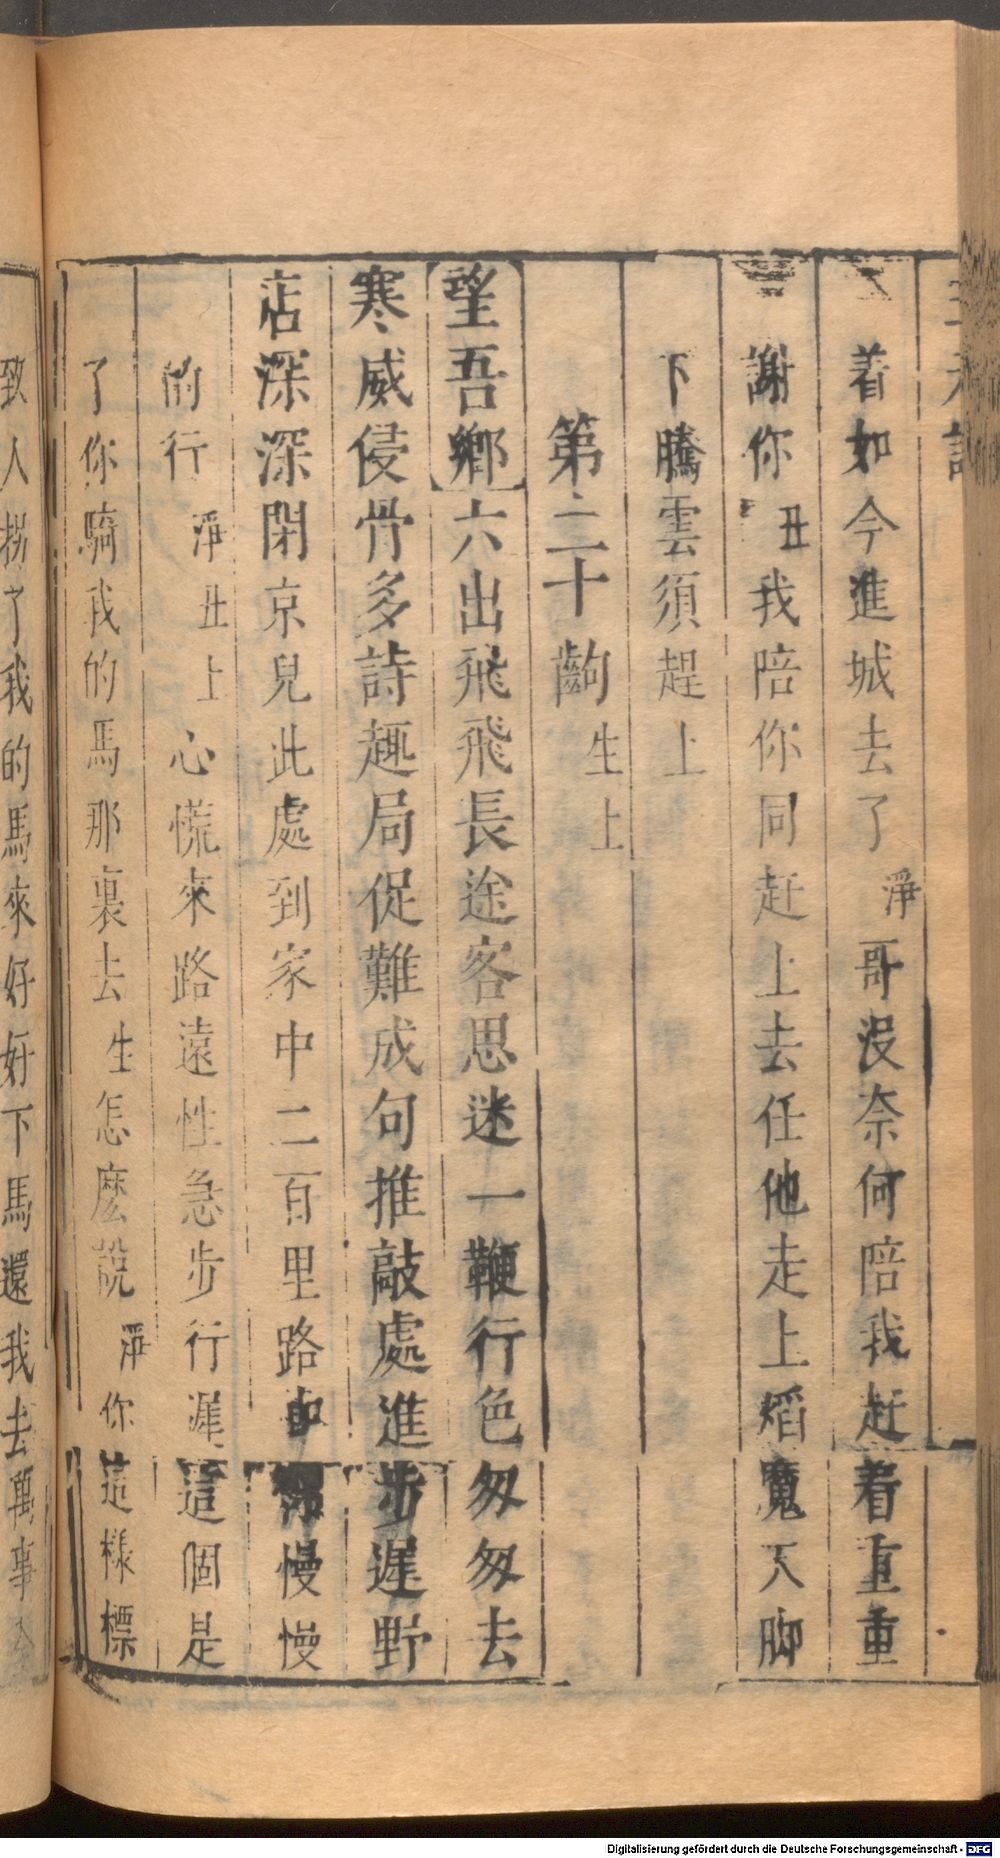 着如今進城去了淨哥沒奈何陪我赶着重重
謝你丑我陪你同赶上去任他走上熖魔天脚
下騰雲須趕上
第二十齣生上
望吾鄉六出飛飛長途客思迷一鞭行色匆匆去
寒威侵骨多詩趣局促難成句推敲處進步遲野
店深深閉京兒此處到家中二百里路 你慢慢
的行淨丑上心慌來路遠性急步行遲這個是
了你騎我的馬那裏去生怎麽説淨你這樣標
致人拐了我的馬來好好下馬還我去萬事
Digitalisierung gefördert durch die Deutsche Forschungsgemeinschaft - DFG